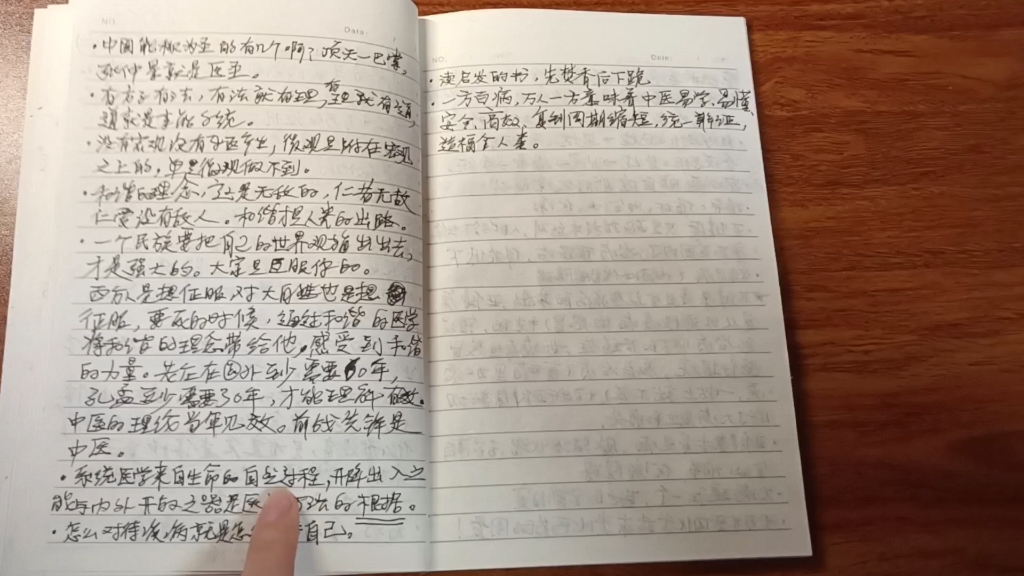 NO.
Date.
·中国能称为圣的有几个啊?
张仲景就是医圣。
·有方子有法,有法就有理,
·没有宏观没有中医产生,微观是附在宏观
之上的,单是微观做不到。
·和谐的理念,它是无敌的,仁者无敌
仁爱没有敌人。和谐担人类的出路。
·一个民族要把自己的世界观输出出去,
才是强大的。大家且臣服你的。
西方是想征服,对大自然也是想
征服,要反的时候,通过和谐的医学
将和谐的理念带给他,感受到和谐
的力量。老庄在国外至少需要60年,
孔孟至少需要30年,才能理解
中医的理论当年见效。前线先锋是
中医。
·系统医学来自生命的自然过程,升降出入之
能与内外开的之器是医 方法的根据。
·怎么对待疾病就是怎 自己。
NO.
Date
·读占炎的书,先焚香后下跪
·一方百病,万人一方意味着中医易学、易懂
安全、高效、复制周期缩短,统一辩证,
造福全人类。